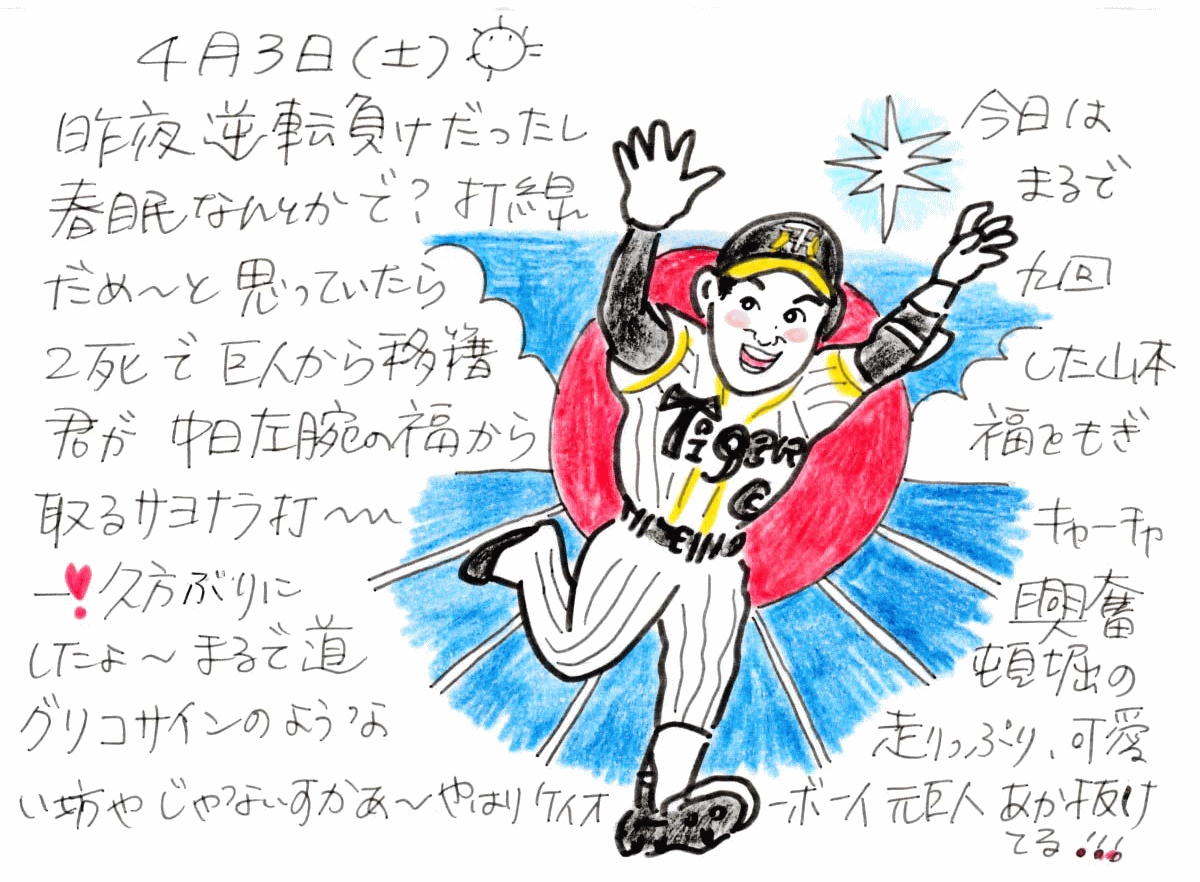 4月3日(土)
昨夜逆転負けだったし 今日は
春眠なんとかで?打線 まるで
だめ〜と思っていたら 九回
2死で巨人から移籍 した山本
君が 中日左腕の福から 福ともぎ
取るサヨナラ打〜〜 キャーチャ
ー!久方ぶりに 興奮
したよ〜まるで道 頓堀の
グリコサインのような 走りっぷり、可愛
い坊やじゃないすかあ〜やはりケイオ ーボーイ元巨人あか抜け
てる!!!
Tigers